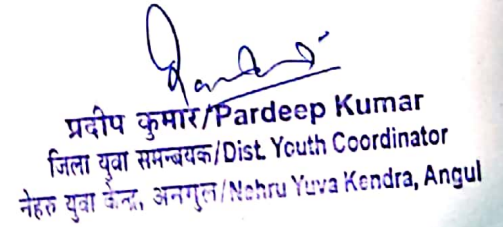 प्रदीप कुमार/Pardeep Kumar
जिला युवा समन्बयक/Dist. Youth Coordinator
नेहरु युवा केन्द्र, अनगुल/Nehru Yuva Kendra, Angul